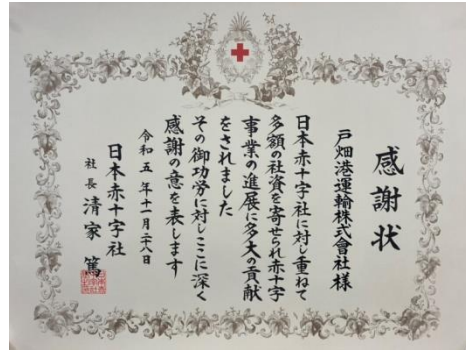 感謝状
戸畑港運輸株式會社様
日本赤十字社に対し重ねて
多額の社資を寄せられ赤十字
事業の進展に多大の貢献
をされました
その御功労に対しここに深く
感謝の意を表します
令和五年十一月二八日
日本赤十字社
社長 清家 篤